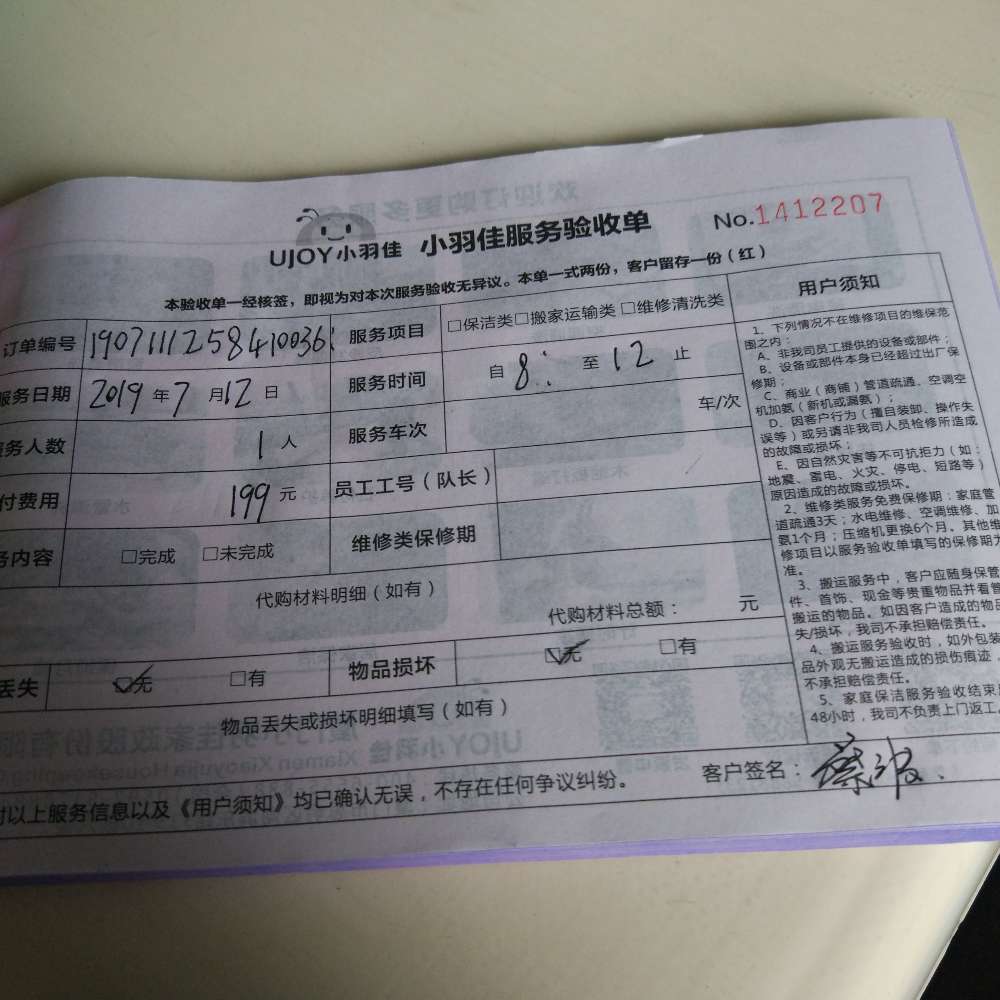 UJOY小羽佳 小羽佳服务验收单 No.1412207
本验收单一经核签，即视为对本次服务验收无异议。本单一式两份，客户留存一份（红）
订单编号 190711125841003６ 服务项目 □保洁类□搬家运输类 □维修清洗类
服务日期 2019 年 7 月 12 日 服务时间 自 8: 至 12 止
务人数 1 人 服务车次 车/次
付费用 199 元 员工工号（队长）
务内容 □完成 □未完成 维修类保修期
代购材料明细（如有）
代购材料总额： 元
丢失 ☑无 □有 物品损坏 ☑无 □有
物品丢失或损坏明细填写（如有）
对以上服务信息以及《用户须知》均已确认无误，不存在任何争议纠纷。 客户签名：蔡波
用户须知
1、下列情况不在维修项目的维保范
围之内：
A、非我司员工提供的设备或部件；
B、设备或部件本身已经超过出厂保
修期；
C、商业（商铺）管道疏通、空调空
机加氨（新机或漏氨）；
D、因客户行为（擅自装卸、操作失
误等）或另请非我司人员检修所造成
的故障或损坏；
E、因自然灾害等不可抗拒力（如：
地震、雷电、火灾、停电、短路等）
原因造成的故障或损坏。
2、维修类服务免费保修期：家庭管
道疏通3天；水电维修、空调维修、加
氨1个月；压缩机更换6个月。其他维
修项目以服务验收单填写的保修期为
准。
3、搬运服务中，客户应随身保管
件、首饰、现金等贵重物品并看管
搬运的物品。如因客户造成的物品
失/损坏，我司不承担赔偿责任。
4、搬运服务验收时，如外包装
品外观无搬运造成的损伤痕迹，
不承担赔偿责任。
5、家庭保洁服务验收结束
48小时，我司不负责上门返工。